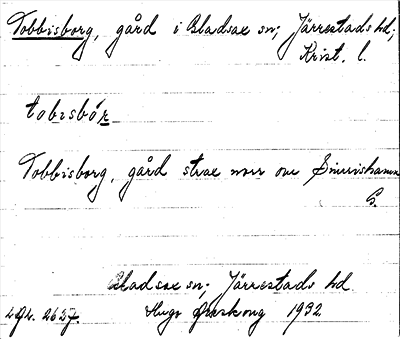 Tobbisborg, gård i Gladsax sn; Järrestads hd;
Krist. l.
tobısbór
Tobbisborg, gård strax norr om Simrishamn
G.
Gladsax sn; Järrestads hd.
Hugo Areskoug 1932
2627.